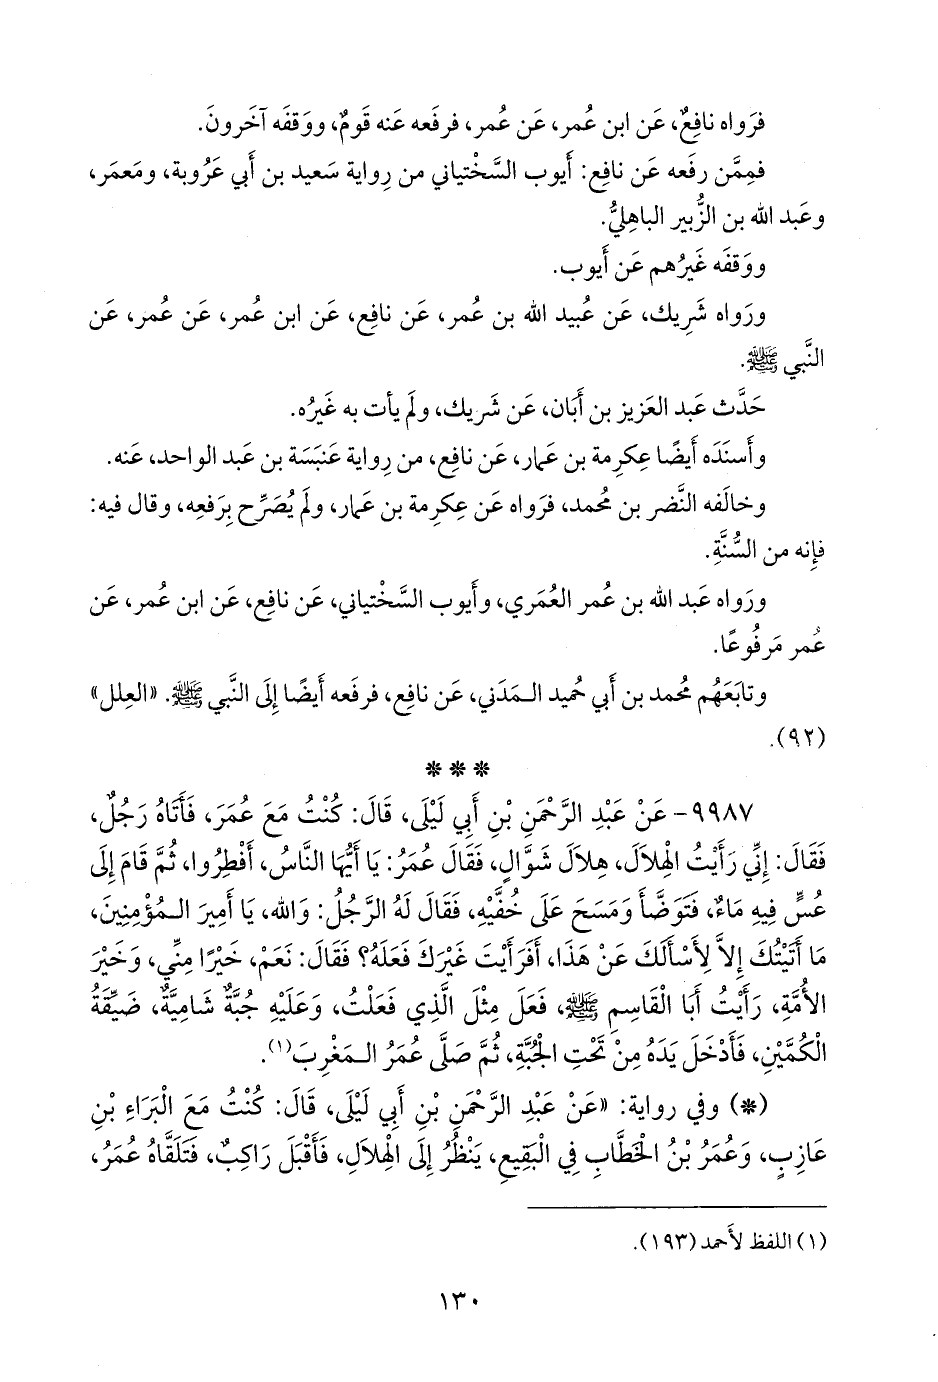 فرَواه نافِعٌ، عَن ابن عُمر، عَن عُمر، فرفَعه عَنه قَومٌ، ووَقفَه آخَرونَ.
فمِمَّن رفَعه عَن نافِع: أَيوب السَّختياني من رِواية سَعيد بن أَبي عَرُوبة، ومَعمَر،
وعَبد الله بن الزُّبير الباهِليُّ.
ووَقفَه غَيرُهم عَن أَيوب.
ورَواه شَرِيك، عَن عُبيد الله بن عُمر، عَن نافِع، عَن ابن عُمر، عَن عُمر، عَن
النَّبي ﷺ.
حَدَّث عَبد العَزيز بن أَبَان، عَن شَريك، ولَم يأت به غَيرُه.
وأَسنَدَه أَيضًا عِكرِمة بن عَمار، عَن نافِع، من رِواية عَنبَسَة بن عَبد الواحد، عَنه.
وخالَفه النَّضر بن مُحمد، فرَواه عَن عِكرِمة بن عَمار، ولَم يُصَرِّح بِرَفعِه، وقال فيه:
فإِنه من السُّنَّةِ.
ورَواه عَبد الله بن عُمر العُمَري، وأَيوب السَّختياني، عَن نافِع، عَن ابن عُمر، عَن
عُمر مَرفُوعًا.
وتابَعَهُم مُحمد بن أَبي حُميد الـمَدَني، عَن نافِع، فرفَعه أَيضًا إِلَى النَّبي ﷺ. «العِلل»
(٩٢).
* * *
٩٩٨٧- عَنْ عَبْدِ الرَّحْمَنِ بْنِ أَبِي لَيْلَى، قَالَ: كُنْتُ مَعَ عُمَرَ، فَأَتَاهُ رَجُلٌ،
فَقَالَ: إِنِّي رَأَيْتُ الْهِلاَلَ، هِلاَلَ شَوَّالٍ، فَقَالَ عُمَرُ: يَا أَيُّهَا النَّاسُ، أَفْطِرُوا، ثُمَّ قَامَ إِلَى
عُسٍّ فِيهِ مَاءٌ، فَتَوَضَّأَ وَمَسَحَ عَلَى خُفَّيْهِ، فَقَالَ لَهُ الرَّجُلُ: وَالله، يَا أَمِيرَ الـمُؤْمِنِينَ،
مَا أَتَيْتُكَ إِلاَّ لِأَسْأَلَكَ عَنْ هَذَا، أَفَرَأَيْتَ غَيْرَكَ فَعَلَهُ؟ فَقَالَ: نَعَمْ، خَيْرًا مِنِّي، وَخَيْرَ
الأُمَّةِ، رَأَيْتُ أَبَا الْقَاسِمِ ﷺ، فَعَلَ مِثْلَ الَّذِي فَعَلْتُ، وَعَلَيْهِ جُبَّةٌ شَامِيَّةٌ، ضَيِّقَةُ
الْكُمَّيْنِ، فَأَدْخَلَ يَدَهُ مِنْ تَحْتِ الْجُبَّةِ، ثُمَّ صَلَّى عُمَرُ الـمَغْرِبَ(١).
(*) وفي رواية: «عَنْ عَبْدِ الرَّحْمَنِ بْنِ أَبِي لَيْلَى، قَالَ: كُنْتُ مَعَ الْبَرَاءِ بْنِ
عَازِبٍ، وَعُمَرُ بْنُ الْخَطَّابِ فِي الْبَقِيعِ، يَنْظُرُ إِلَى الْهِلاَلِ، فَأَقْبَلَ رَاكِبٌ، فَتَلَقَّاهُ عُمَرُ،
(١) اللفظ لأَحمد (١٩٣).
١٣٠